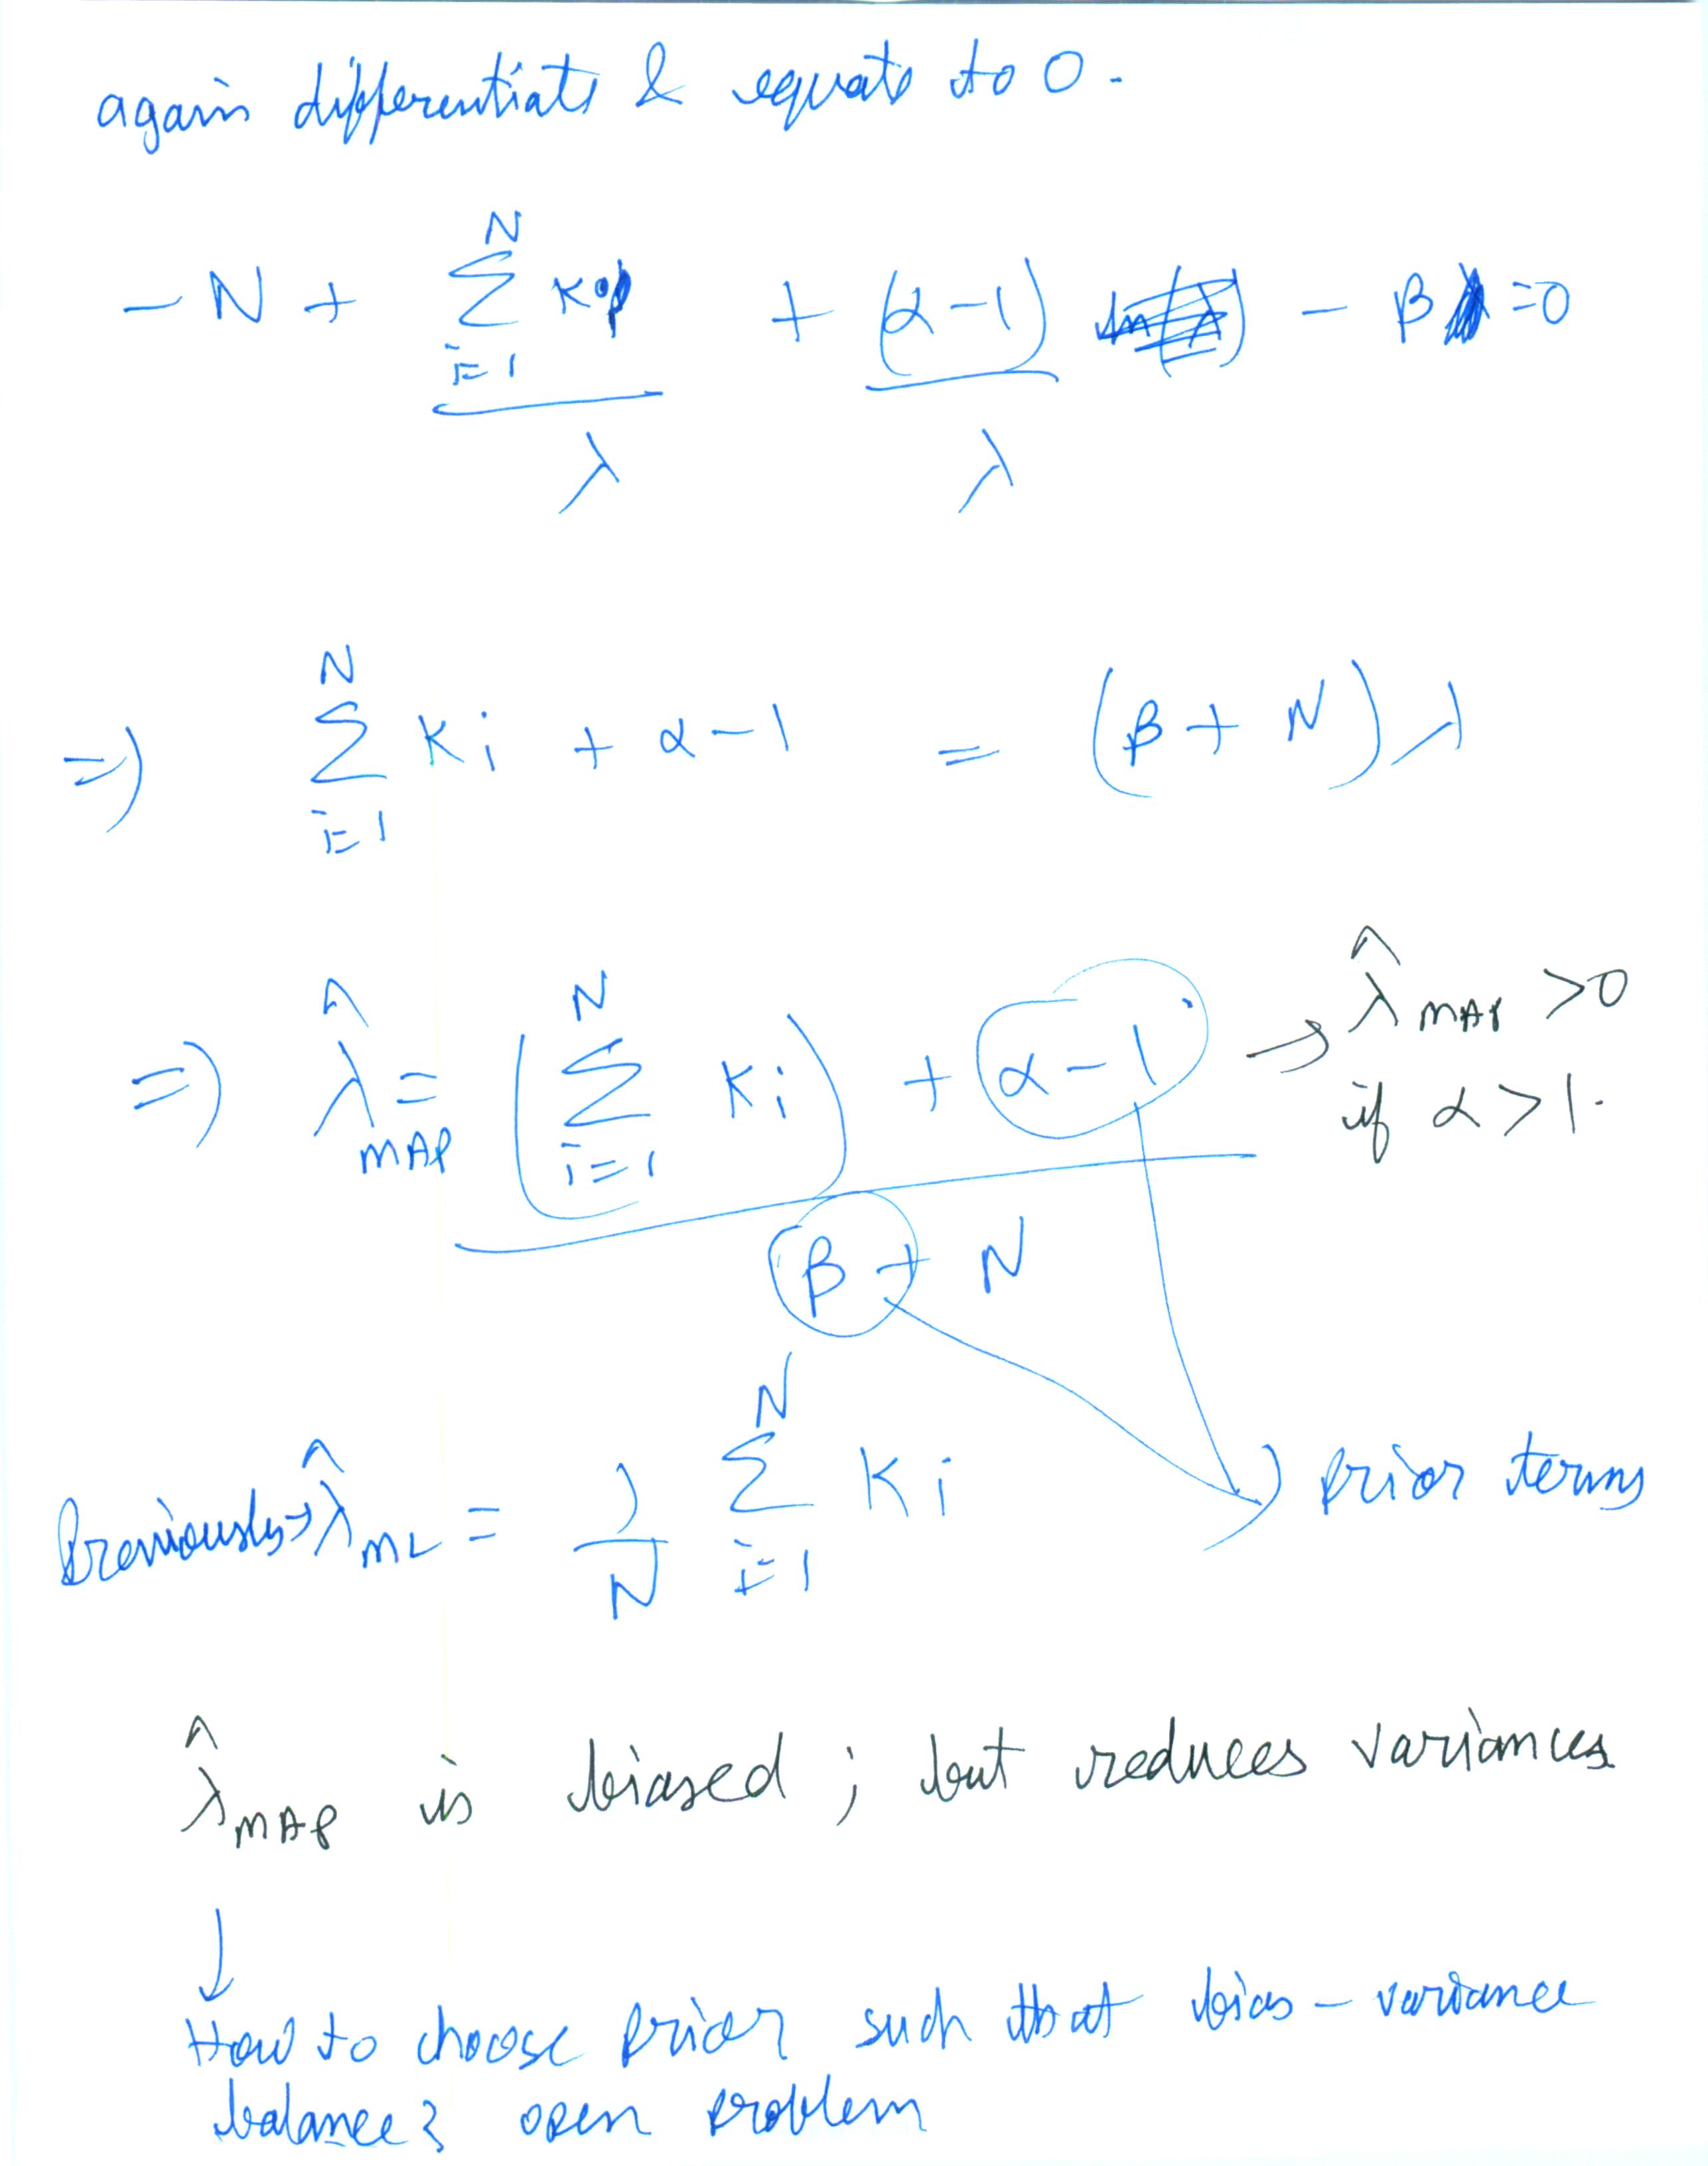 again differentiate & equate to 0.
- N + \frac{\sum_{i=1}^{N} k_i}{λ} + \frac{(α-1)}{λ} - β = 0
=) \sum_{i=1}^{N} k_i + α - 1 = (β + N) λ
=) \hat{λ}_{MAP} = \frac{(\sum_{i=1}^{N} k_i) + α - 1}{β + N} → \hat{λ}_{MAP} > 0
if α > 1.
Previously → \hat{λ}_{ML} = \frac{1}{N} \sum_{i=1}^{N} k_i
prior terms
\hat{λ}_{MAP} is biased ; but reduces variances
↓
How to choose prior such that bias - variance
balance? open problem